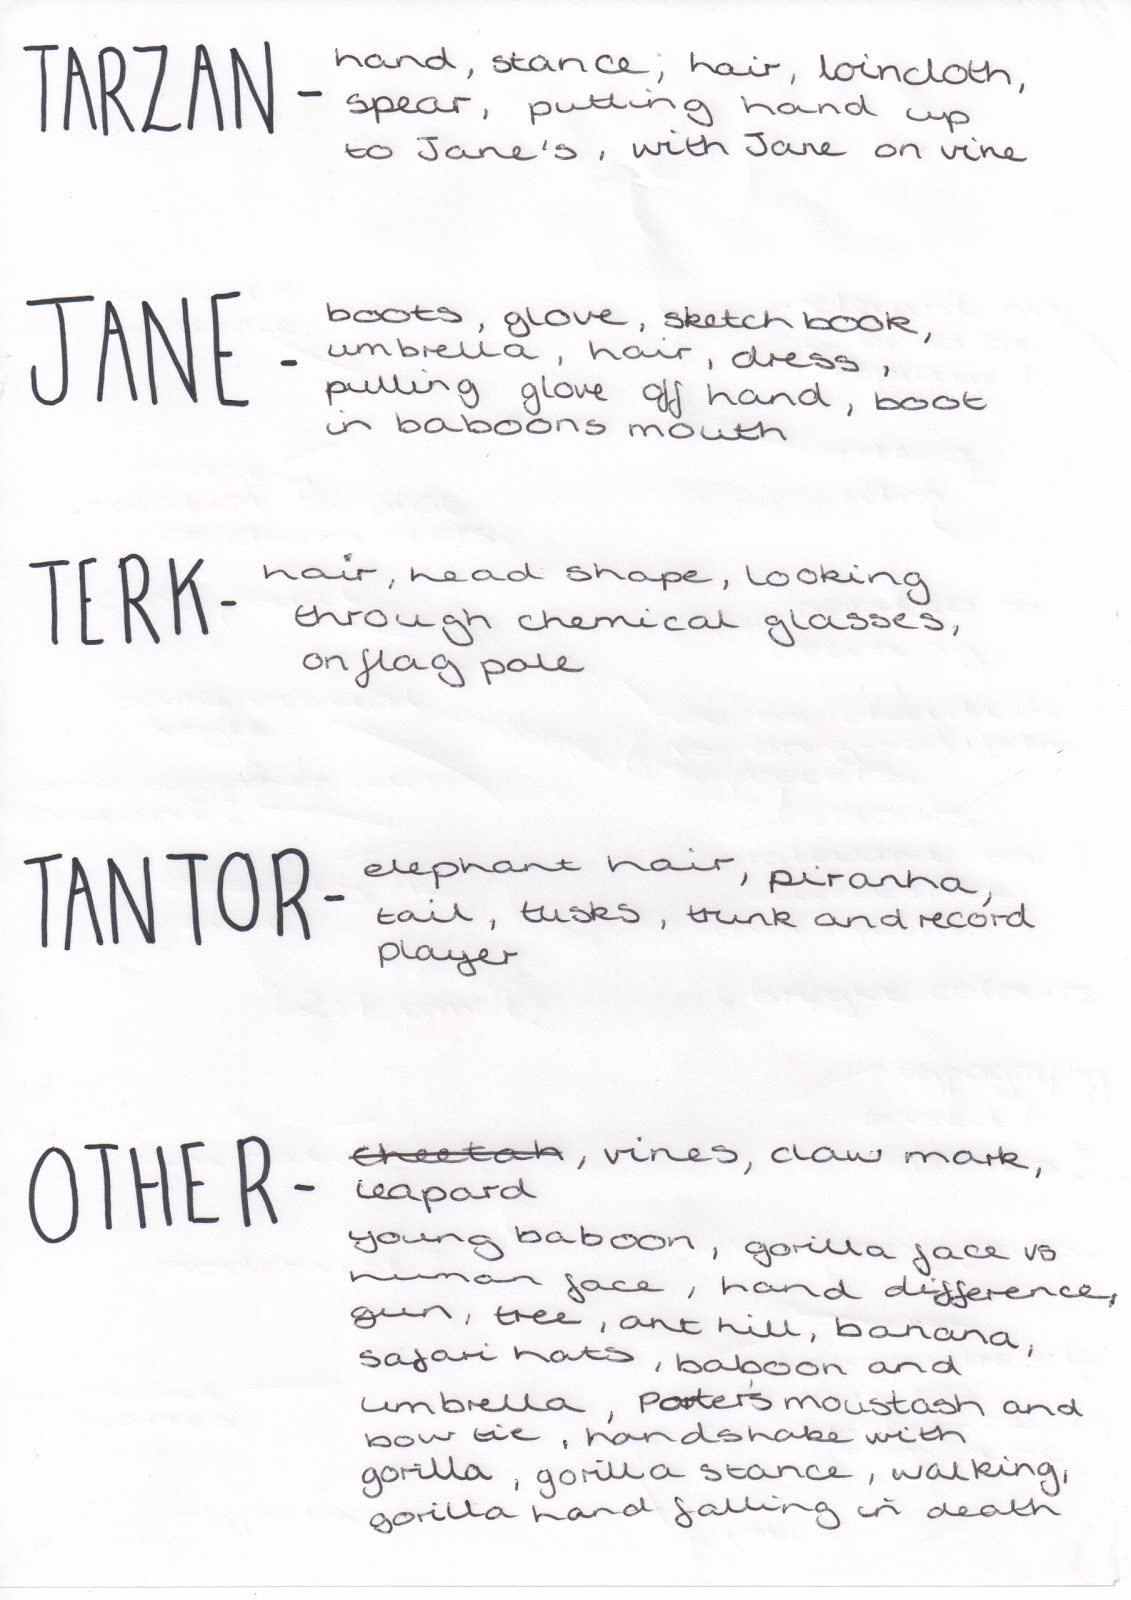 TARZAN - hand, stance, hair, loincloth,
spear, putting hand up
to Jane's, with Jane on vine
JANE - boots, glove, sketch book,
umbrella, hair, dress,
pulling glove off hand, boot
in baboons mouth
TERK - hair, head shape, looking
through chemical glasses,
on flag pole
TANTOR - elephant hair, piranha,
tail, tusks, trunk and record
player
OTHER - cheetah, vines, claw mark,
leapard
young baboon, gorilla face vs
human face, hand difference,
gun, tree, ant hill, banana,
safari hats, baboon and
umbrella, Porter's moustash and
bow tie, handshake with
gorilla, gorilla stance, walking,
gorilla hand falling in death